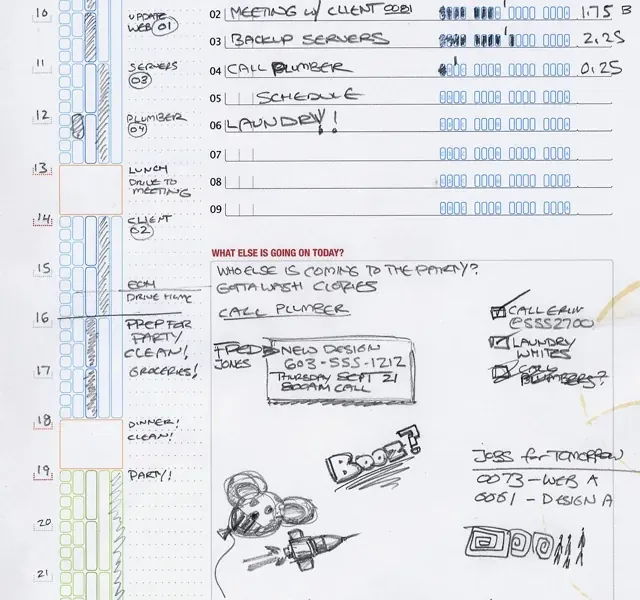 10
UPDATE
WEB 01
11
SERVERS
03
12
PLUMBER
04
13
LUNCH
DRIVE TO
MEETING
14
CLIENT
02
15
EOM
DRIVE HOME
16
PREP FOR
PARTY
CLEAN!
17
GROCERIES!
18
DINNER!
CLEAN!
19
PARTY!
20
21
02 MEETING W/ CLIENT 0081 1.75 B
03 BACKUP SERVERS 2.25
04 CALL PLUMBER 0.25
05 SCHEDULE
06 LAUNDRY!!
07
08
09
WHAT ELSE IS GOING ON TODAY?
WHO ELSE IS COMING TO THE PARTY?
GOTTA WASH CLOTHES
CALL PLUMBER
FRED
JONES
NEW DESIGN
603-555-1212
THURSDAY SEPT 21
800AM CALL
CALL ERIN
@5552700
LAUNDRY
WHITES
CALL
PLUMBERS?
BOOZ?
JOBS for TOMORROW
0073 - WEB A
0061 - DESIGN A